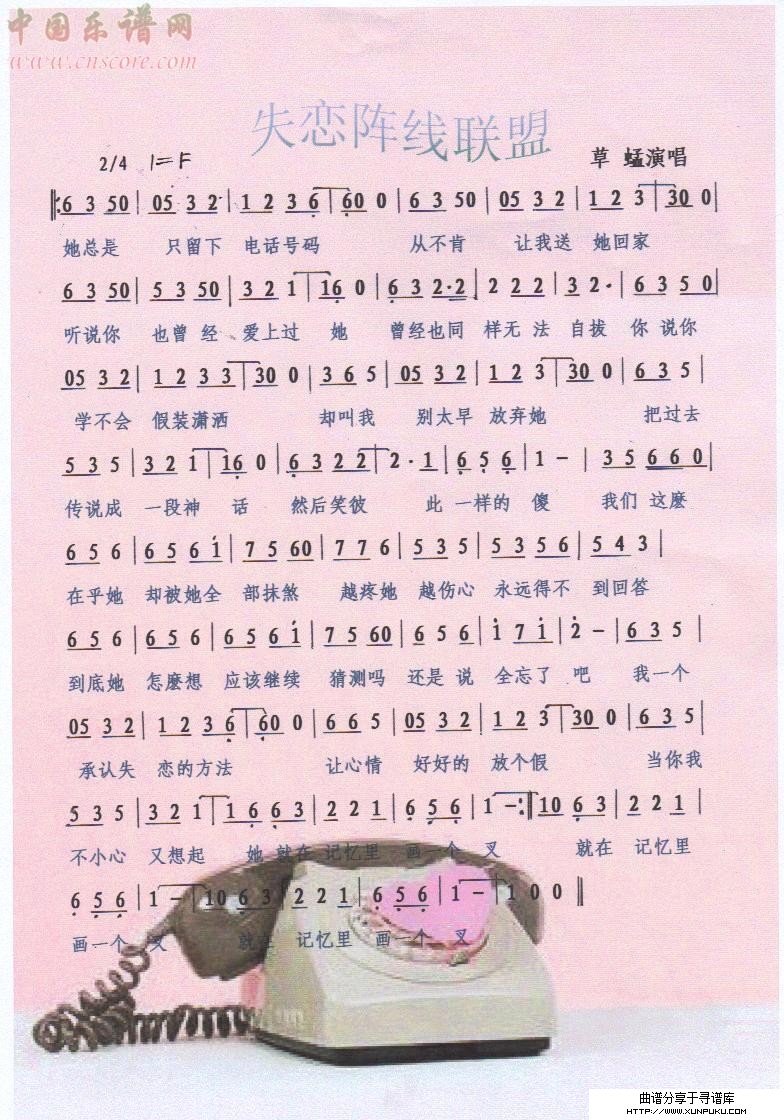 中国乐谱网
www.cnscore.com
失恋阵线联盟
2/4 1=F 草 蜢演唱
‖:6 3 50 | 05 3 2 | 1 2 3 6 | 60 0 | 6 3 50 | 05 3 2 | 1 2 3 | 30 0 |
她总是 只留下 电话号码 从不肯 让我送 她回家
6 3 50 | 5 3 50 | 3 2 1 | 16 0 | 6 3 2·2 | 2 2 2 | 3 2· | 6 3 5 0 |
听说你 也曾 经 爱上过 她 曾经也同 样无 法 自拔 你 说你
05 3 2 | 1 2 3 3 | 30 0 | 3 6 5 | 05 3 2 | 1 2 3 | 30 0 | 6 3 5 |
学不会 假装潇洒 却叫我 别太早 放弃她 把过去
5 3 5 | 3 2 1 | 16 0 | 6 3 2 2 | 2·1 | 6 5 6 | 1 – | 3 5 6 6 0 |
传说成 一段神 话 然后笑彼 此 一样的 傻 我们 这麽
6 5 6 | 6 5 6 1 | 7 5 60 | 7 7 6 | 5 3 5 | 5 3 5 6 | 5 4 3 |
在乎她 却被她全 部抹煞 越疼她 越伤心 永远得不 到回答
6 5 6 | 6 5 6 | 6 5 6 1 | 7 5 60 | 6 5 6 | 1 7 1 | 2 – | 6 3 5 |
到底她 怎麽想 应该继续 猜测吗 还是 说 全忘了 吧 我一个
05 3 2 | 1 2 3 6 | 60 0 | 6 6 5 | 05 3 2 | 1 2 3 | 30 0 | 6 3 5 |
承认失 恋的方法 让心情 好好的 放个假 当你我
5 3 5 | 3 2 1 | 1 6 6 3 | 2 2 1 | 6 5 6 | 1 –:‖ 10 6 3 | 2 2 1 |
不小心 又想起 她 就在 记忆里 画 一 个 叉 就在 记忆里
6 5 6 | 1 – | 10 6 3 | 2 2 1 | 6 5 6 | 1 – | 1 0 0 ‖
画一个 叉 就在 记忆里 画一个 叉
曲谱分享于寻谱库
HTTP://WWW.XUNPUKU.COM